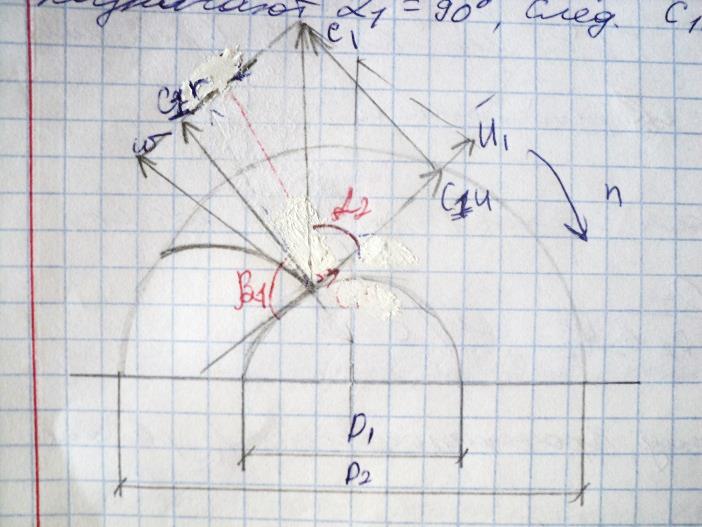 α₁ = 90°, след. C₁
C₁
C₁r
w
U₁
α₂
C₁u
n
β₁
D₁
D₂